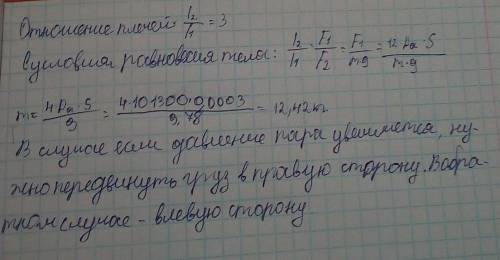 Отношение плечей: l₂/l₁ = 3
С условия равновесия тела: l₂/l₁ = F₁/F₂ = F₁/m·g = 12·Pa·S/m·g
m = 4Pa·S/g = 4·101300·0,0003/9,78 = 12,42 кг.
В случае если давление пара увеличится, ну-
жно передвинуть груз в правую сторону. В обра-
тном случае - в левую сторону